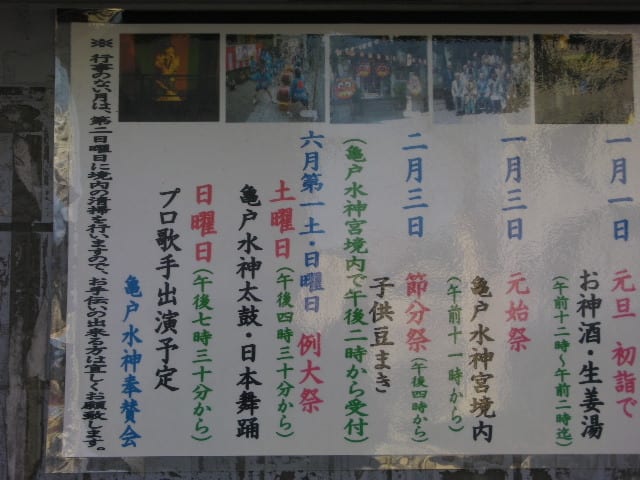 一月一日 元旦 初詣で
お神酒・生姜湯
(午前十二時～午前二時迄)
一月三日 元始祭
亀戸水神宮境内
(午前十一時から)
二月三日 節分祭(午後四時から)
子供豆まき
(亀戸水神宮境内で午後二時から受付)
六月第一土・日曜日 例大祭
土曜日(午後四時三十分から)
亀戸水神太鼓・日本舞踊
日曜日(午後七時三十分から)
プロ歌手出演予定
亀戸水神奉賛会
※ 行事のない月は、第二日曜日に境内の清掃を行いますので、お手伝いの出来る方は宜しくお願い致します。